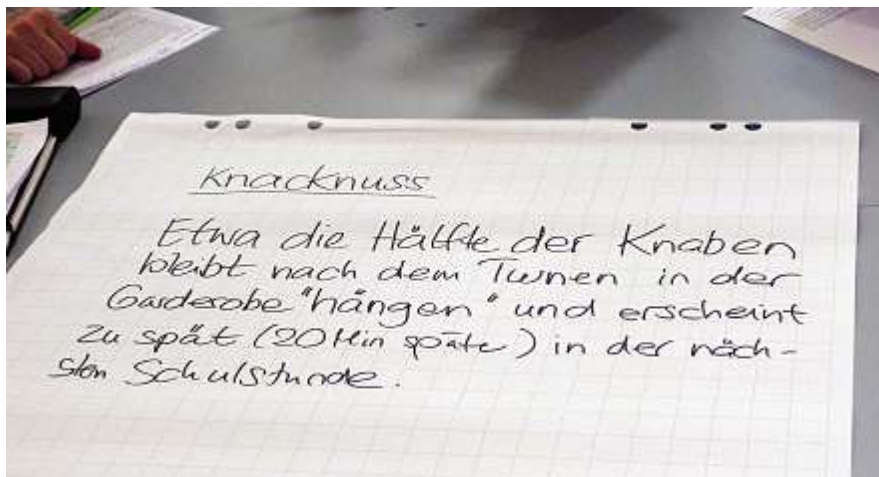 Knacknuss
Etwa die Hälfte der Knaben
bleibt nach dem Turnen in der
Garderobe "hängen" und erscheint
zu spät (20 Min später) in der näch-
sten Schulstunde.